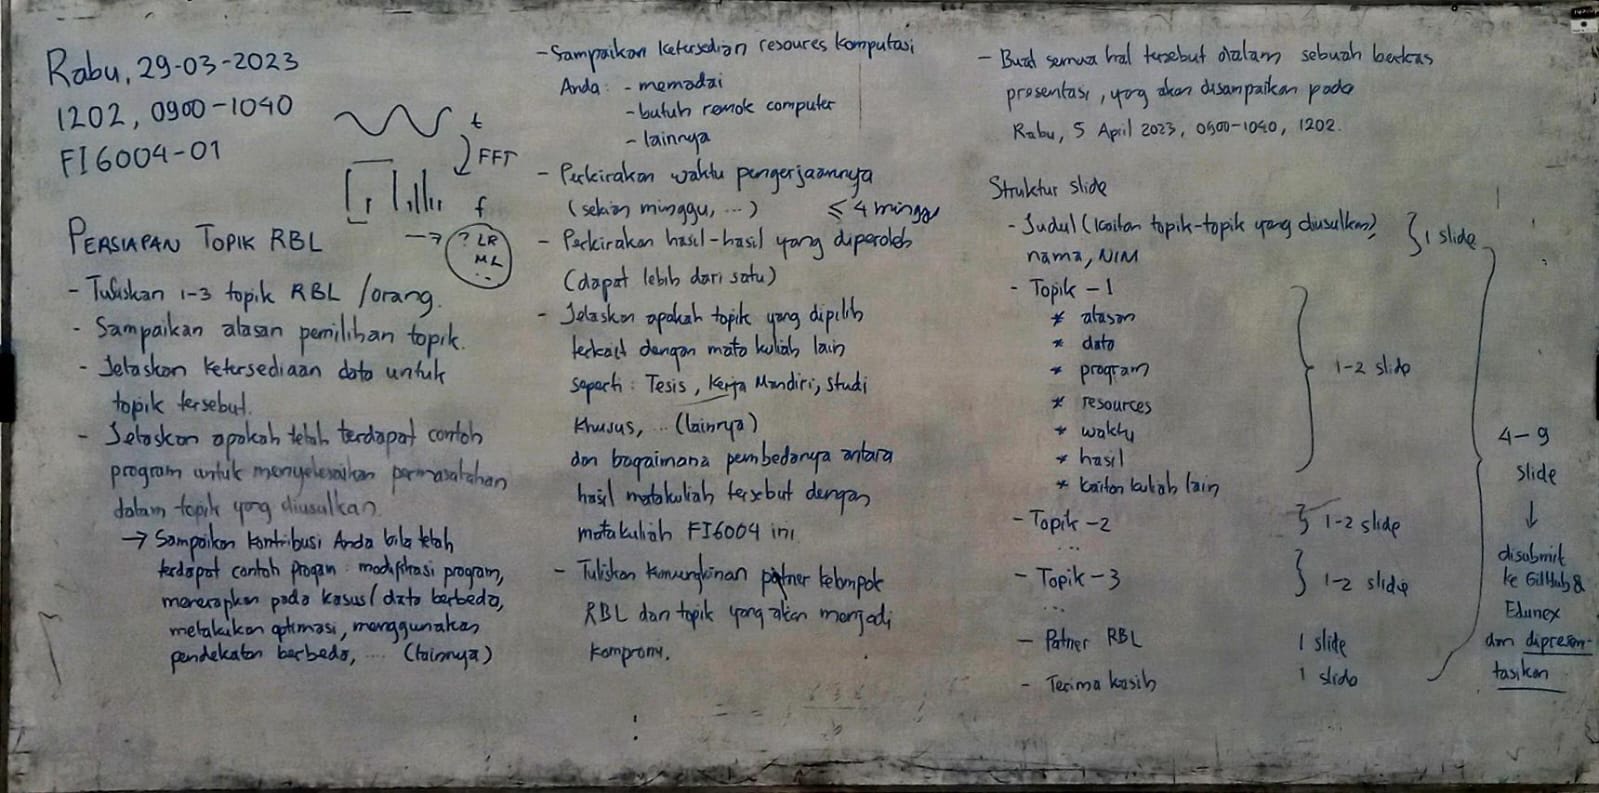 Rabu, 29-03-2023
1202, 0900-1040
FI6004-01
t
FFT
f
→ ? LR
ML
..
PERSIAPAN TOPIK RBL
- Tuliskan 1-3 topik RBL /orang.
- Sampaikan alasan pemilihan topik.
- Jelaskan ketersediaan data untuk
topik tersebut.
- Jelaskan apakah telah terdapat contoh
program untuk menyelesaikan permasalahan
dalam topik yang diusulkan.
→ Sampaikan kontribusi Anda bila telah
terdapat contoh progam: modifikasi program,
menerapkan pada kasus/data berbeda,
melakukan optimasi, menggunakan
pendekatan berbeda, ... (lainnya)
- Sampaikan ketersedian resoures komputasi
Anda: - memadai
- butuh remok computer
- lainnya
- Perkirakan waktu pengerjaannya
(sekian minggu, ...) ≤ 4 minggu
- Perkirakan hasil-hasil yang diperoleh
(dapat lebih dari satu)
- Jelaskan apakah topik yang dipilih
terkait dengan mata kuliah lain
seperti: Tesis, Kerja Mandiri, Studi
Khusus, ... (lainnya)
dan bagaimana pembedanya antara
hasil matakuliah tersebut dengan
matakuliah FI6004 ini
- Tuliskan kemungkinan patner kelompok
RBL dan topik yang akan menjadi
kompromi.
- Buat semua hal tersebut dalam sebuah berkas
presentasi, yang akan disampaikan pada
Rabu, 5 April 2023, 0900-1040, 1202.
Struktur slide
- Judul (kaitan topik-topik yang diusulkan), } 1 slide
nama, NIM
- Topik -1
* alasan
* data
* program 1-2 slide
* resources
* waktu
* hasil
* kaitan kuliah lain
- Topik -2 } 1-2 slide
...
- Topik -3 } 1-2 slide
...
- Patner RBL 1 slide
- Terima kasih 1 slide
4-9
slide
↓
disubmit
ke GitHub &
Edunex
dan dipresen-
tasikan